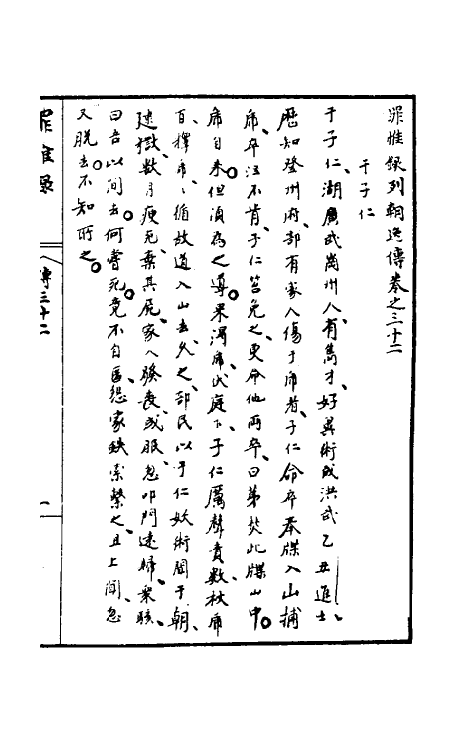 罪惟錄列朝逸傳卷之三十二
于子仁
于子仁湖廣武崗州人有雋才好異術成洪武乙丑進士
歷知登州府部有家人傷于虎者子仁命卒奉牒入山捕
虎卒泣不肯子仁笞免之更命他两卒曰第焚此牒山中
虎自来但湏為之導果溺虎伏庭下子仁厲聲責數杖虎
百擇虎虎循故道入山去久之部民以子仁妖術聞于朝
逮獄數月瘐死棄其屍家人發喪成服忽叩門遠婦衆駭
曰吾以間去何嘗死竟不自匿怨家鉄索繫之且上聞忽
又脱去不知所之
罪惟录
傳三十二
一